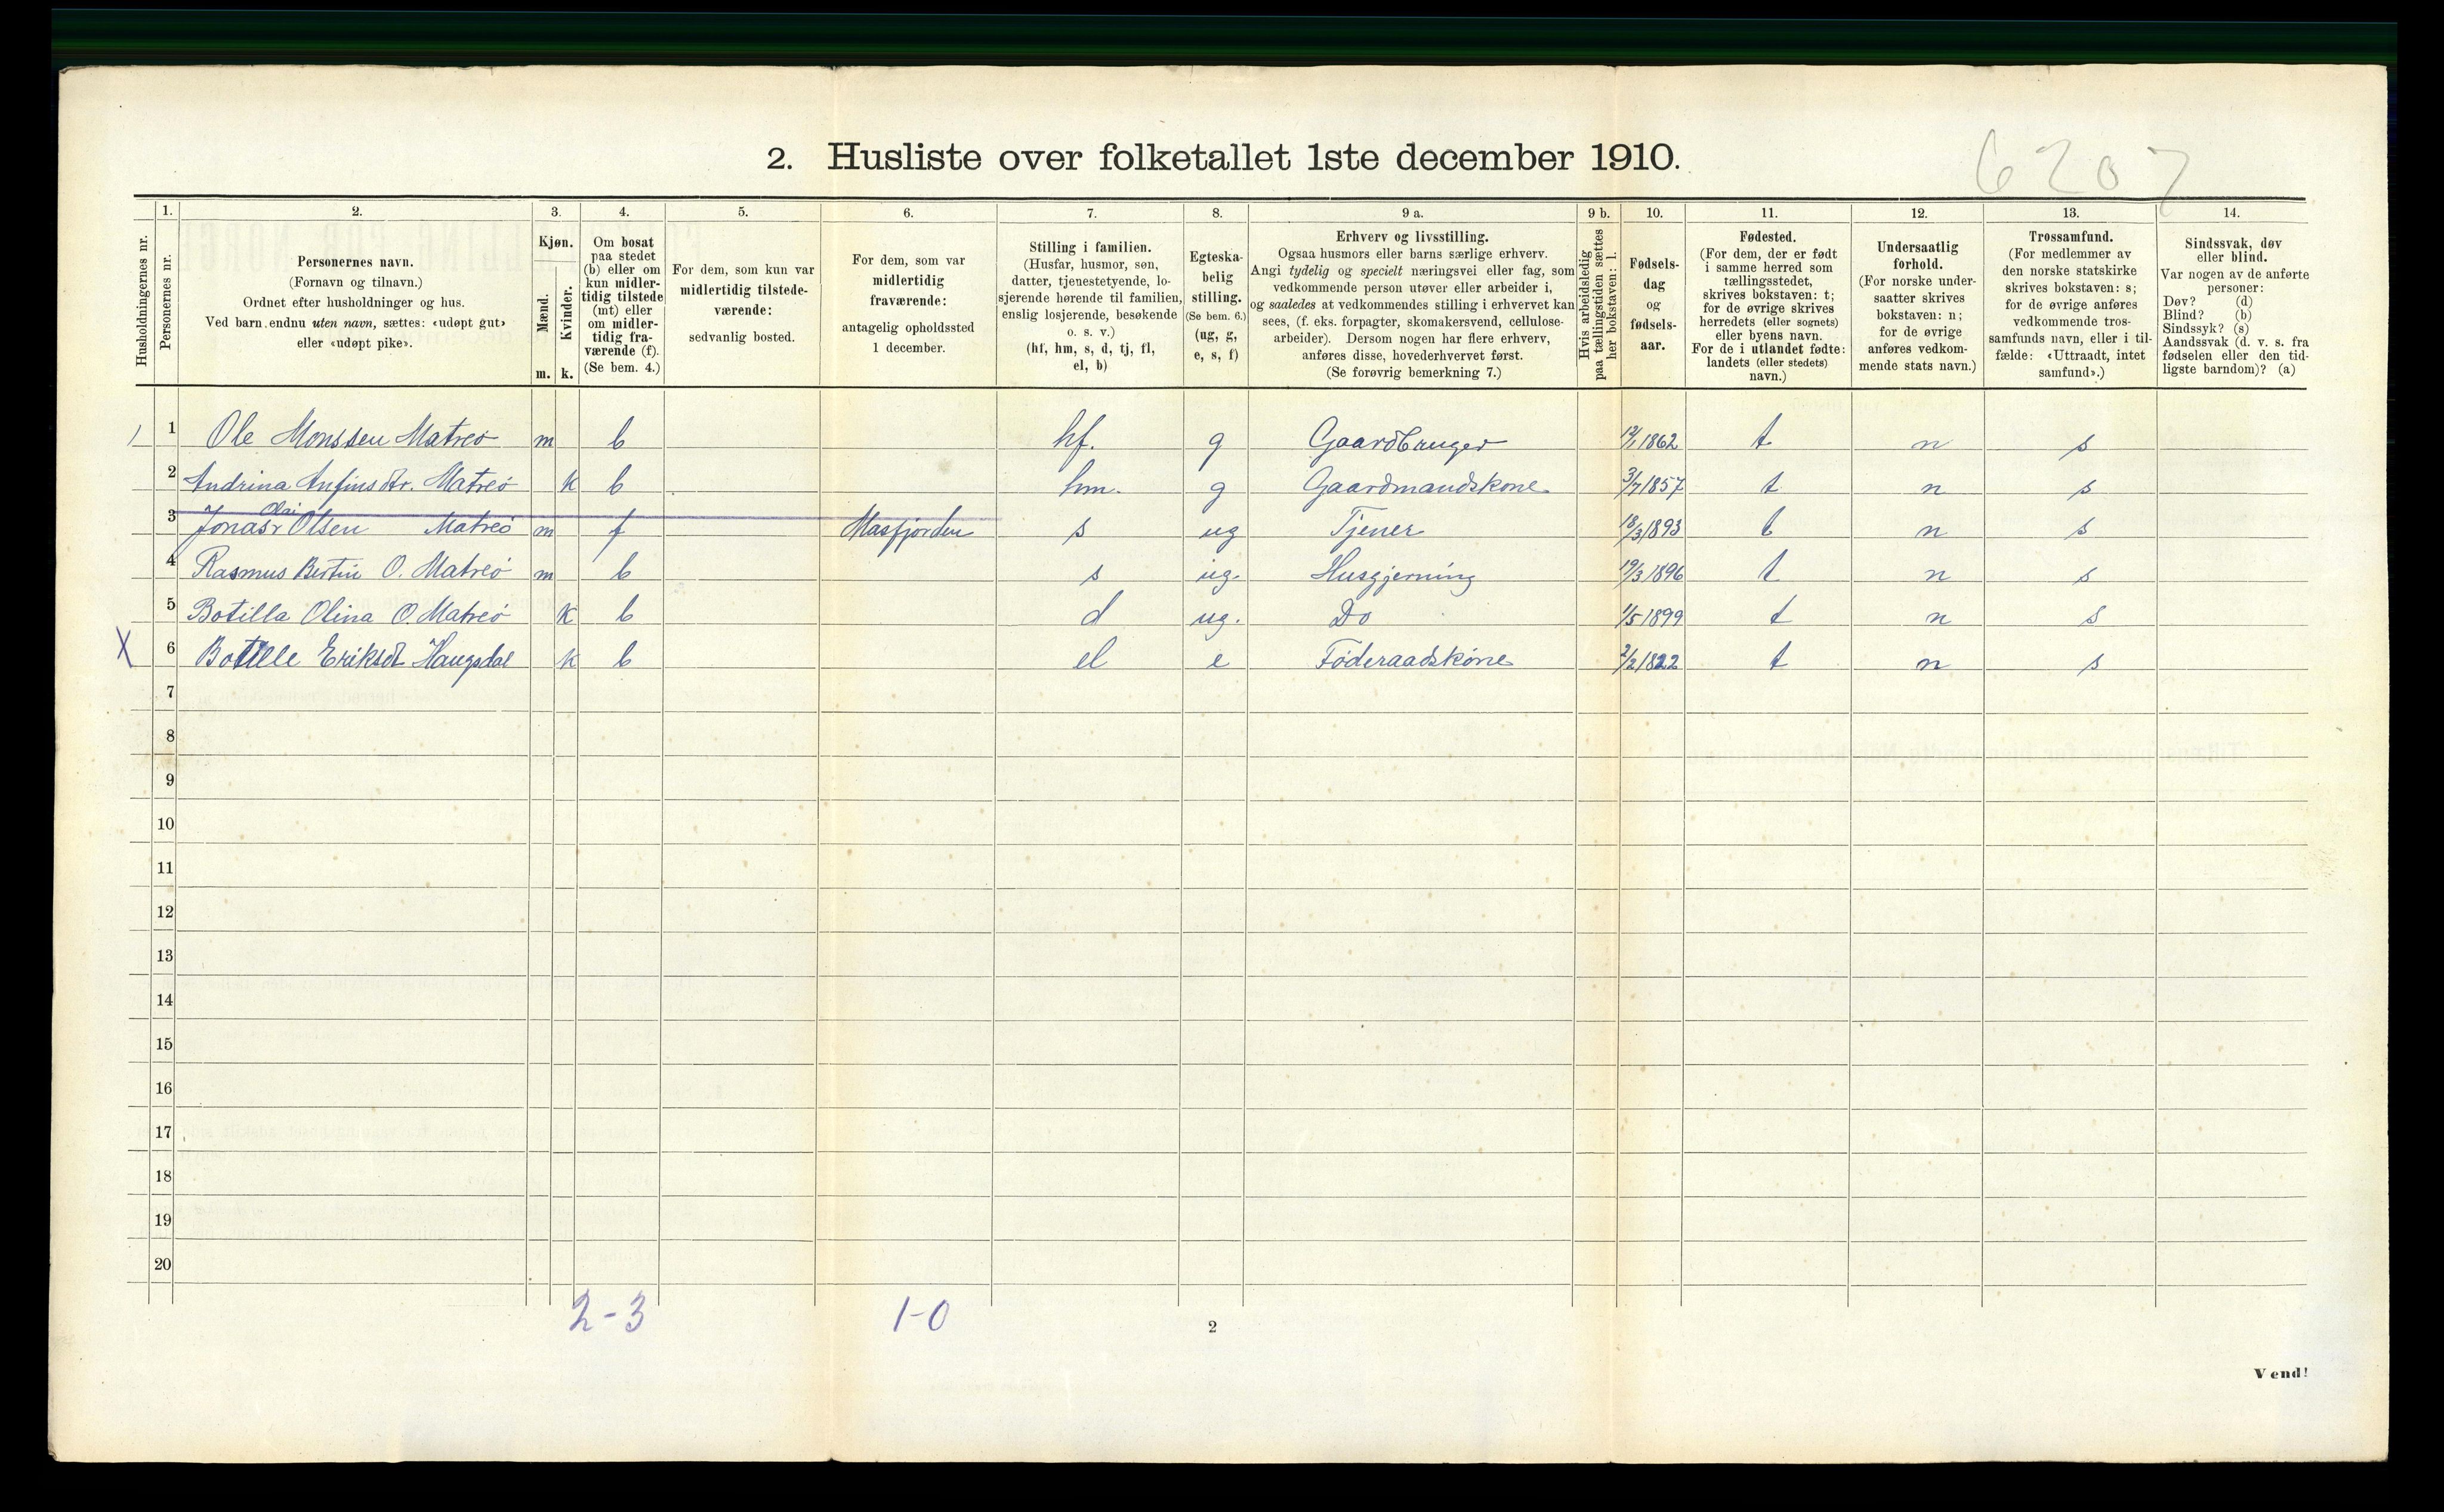 6207
2. Husliste over folketallet 1ste december 1910.
1. 2. 3. 4. 5. 6. 7. 8. 9 a. 9 b. 10. 11. 12. 13. 14.
Husholdningernes nr.
Personernes nr.
Personernes navn.
(Fornavn og tilnavn.)
Ordnet efter husholdninger og hus.
Ved barn endnu uten navn, sættes: «udøpt gut»
eller «udøpt pike».
Kjøn.
Mænd.
Kvinder.
m. k.
Om bosat
paa stedet
(b) eller om
kun midler-
tidig tilstede
(mt) eller
om midler-
tidig fra-
værende (f).
(Se bem. 4.)
For dem, som kun var
midlertidig tilstede-
værende:
sedvanlig bosted.
For dem, som var
midlertidig
fraværende:
antagelig opholdssted
1 december.
Stilling i familien.
(Husfar, husmor, søn,
datter, tjenestetyende, lo-
sjerende hørende til familien,
enslig losjerende, besøkende
o. s. v.)
(hf, hm, s, d, tj, fl,
el, b)
Egteska-
belig
stilling.
(Se bem. 6.)
(ug, g,
e, s, f)
Erhverv og livsstilling.
Ogsaa husmors eller barns særlige erhverv.
Angi tydelig og specielt næringsvei eller fag, som
vedkommende person utøver eller arbeider i,
og saaledes at vedkommendes stilling i erhvervet kan
sees, (f. eks. forpagter, skomakersvend, cellulose-
arbeider). Dersom nogen har flere erhverv,
anføres disse, hovederhvervet først.
(Se forøvrig bemerkning 7.)
Hvis arbeidsledig
paa tællingstiden sættes
her bokstaven: l.
Fødsels-
dag
og
fødsels-
aar.
Fødested.
(For dem, der er født
i samme herred som
tællingsstedet,
skrives bokstaven: t;
for de øvrige skrives
herredets (eller sognets)
eller byens navn.
For de i utlandet fødte:
landets (eller stedets)
navn.)
Undersaatlig
forhold.
(For norske under-
saatter skrives
bokstaven: n;
for de øvrige
anføres vedkom-
mende stats navn.)
Trossamfund.
(For medlemmer av
den norske statskirke
skrives bokstaven: s;
for de øvrige anføres
vedkommende tros-
samfunds navn, eller i til-
fælde: «Uttraadt, intet
samfund».)
Sindssvak, døv
eller blind.
Var nogen av de anførte
personer:
Døv? (d)
Blind? (b)
Sindssyk? (s)
Aandssvak (d. v. s. fra
fødselen eller den tid-
ligste barndom)? (a)
1 1 Ole Monssen Matreó m b hf. g Gaardbruger 12/1 1862 t n s
2 Andrina Anfinsdtr. Matreó k b hm. g Gaardmandskone 3/7 1857 t n s
Olai
3 Jonas Olsen Matreó m f Masfjorden s ug Tjener 18/3 1893 t n s
4 Rasmus Bertin O. Matreó m b s ug. Husgjerning 19/3 1896 t n s
5 Botilla Olina O. Matreó k b d ug. Do 1/5 1899 t n s
X 6 Botille Eriksdt Haugsdal k b el e Føderaadskone 2/2 1822 t n s
7
8
9
10
11
12
13
14
15
16
17
18
19
20
2-3 1-0
2
Vend!